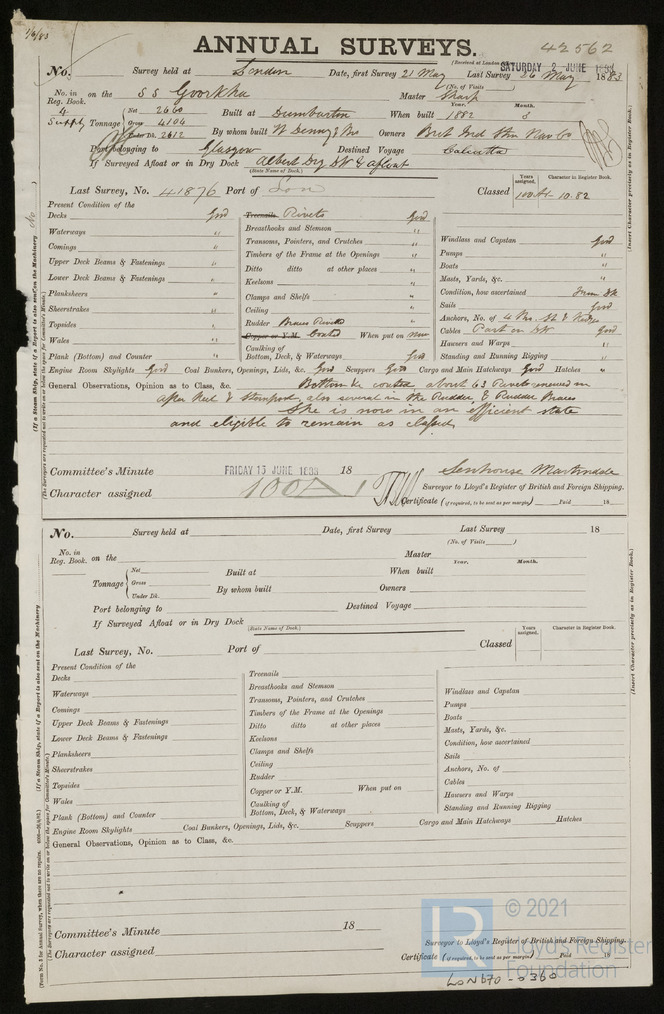 7/6/83
ANNUAL SURVEYS. 42562
(Received at London
SATURDAY 2 JUNE 1883
No. Survey held at London Date, first Survey 21 May Last Survey 26 May 1883
(No. of Visits )
No. in Reg. Book. on the SS Goorkha Master Sharp
4 Supply Tonnage Net 2660 Gross 4104 Under Dk. 2612 Built at Dumbarton When built Year. 1882 Month. 8
By whom built W Denny & Bros Owners Brit Ind Stm Nav Co
Port belonging to Glasgow Destined Voyage Calcutta
If Surveyed Afloat or in Dry Dock Albert Dry Dk & afloat
(State Name of Dock.)
Last Survey, No. 41876 Port of Lon Classed Years assigned. Character in Register Book. 100A1- 10.82
Present Condition of the
Decks Good
Waterways "
Comings "
Upper Deck Beams & Fastenings "
Lower Deck Beams & Fastenings "
Planksheers "
Sheerstrakes "
Topsides "
Wales "
Plank (Bottom) and Counter "
Treenails Rivets Good
Breasthooks and Stemson "
Transoms, Pointers, and Crutches "
Timbers of the Frame at the Openings "
Ditto ditto at other places "
Keelsons "
Clamps and Shelfs "
Ceiling "
Rudder Braces Rivetted
Copper or Y.M. Coated When put on now
Caulking of Bottom, Deck, & Waterways Good
Windlass and Capstan Good
Pumps "
Boats "
Masts, Yards, &c. "
Condition, how ascertained from Dk
Sails Good
Anchors, No. of 4 Brs. St & Kedge
Cables Part on Dk Good
Hawsers and Warps "
Standing and Running Rigging "
Engine Room Skylights Good Coal Bunkers, Openings, Lids, &c. Good Scuppers Good Cargo and Main Hatchways Good Hatches "
General Observations, Opinion as to Class, &c. Bottom coated about 63 Rivets renewed in
after Keel & Sternpost, also several in the Rudder, & Rudder Braces
She is now in an efficient state
and eligible to remain as classed
Committee's Minute FRIDAY 15 JUNE 1883 18 Senhouse Martindale
Character assigned 100A1 Surveyor to Lloyd's Register of British and Foreign Shipping.
Certificate (if required, to be sent as per margin) Paid 18
No. Survey held at Date, first Survey Last Survey 18
(No. of Visits )
No. in Reg. Book. on the Master
Tonnage Net Gross Under Dk. Built at When built Year. Month.
By whom built Owners
Port belonging to Destined Voyage
If Surveyed Afloat or in Dry Dock
(State Name of Dock.)
Last Survey, No. Port of Classed Years assigned. Character in Register Book.
Present Condition of the
Decks
Waterways
Comings
Upper Deck Beams & Fastenings
Lower Deck Beams & Fastenings
Planksheers
Sheerstrakes
Topsides
Wales
Plank (Bottom) and Counter
Treenails
Breasthooks and Stemson
Transoms, Pointers, and Crutches
Timbers of the Frame at the Openings
Ditto ditto at other places
Keelsons
Clamps and Shelfs
Ceiling
Rudder
Copper or Y.M. When put on
Caulking of Bottom, Deck, & Waterways
Windlass and Capstan
Pumps
Boats
Masts, Yards, &c.
Condition, how ascertained
Sails
Anchors, No. of
Cables
Hawsers and Warps
Standing and Running Rigging
Engine Room Skylights Coal Bunkers, Openings, Lids, &c. Scuppers Cargo and Main Hatchways Hatches
General Observations, Opinion as to Class, &c.
Committee's Minute 18
Character assigned Surveyor to Lloyd's Register of British and Foreign Shipping.
Certificate (if required, to be sent as per margin) Paid 18
LON670-0360
(Insert Character precisely as in Register Book.)
(Insert Character precisely as in Register Book.)
(If a Steam Ship, state if a Report is also sent on the Machinery
(The Surveyors are requested not to write on or below the space for Committee's Minute.)
(If a Steam Ship, state if a Report is also sent on the Machinery
(The Surveyors are requested not to write on or below the space for Committee's Minute.)
(Form No. 8 for Annual Survey, when there are no repairs.
© 2021
Lloyd's Register
Foundation